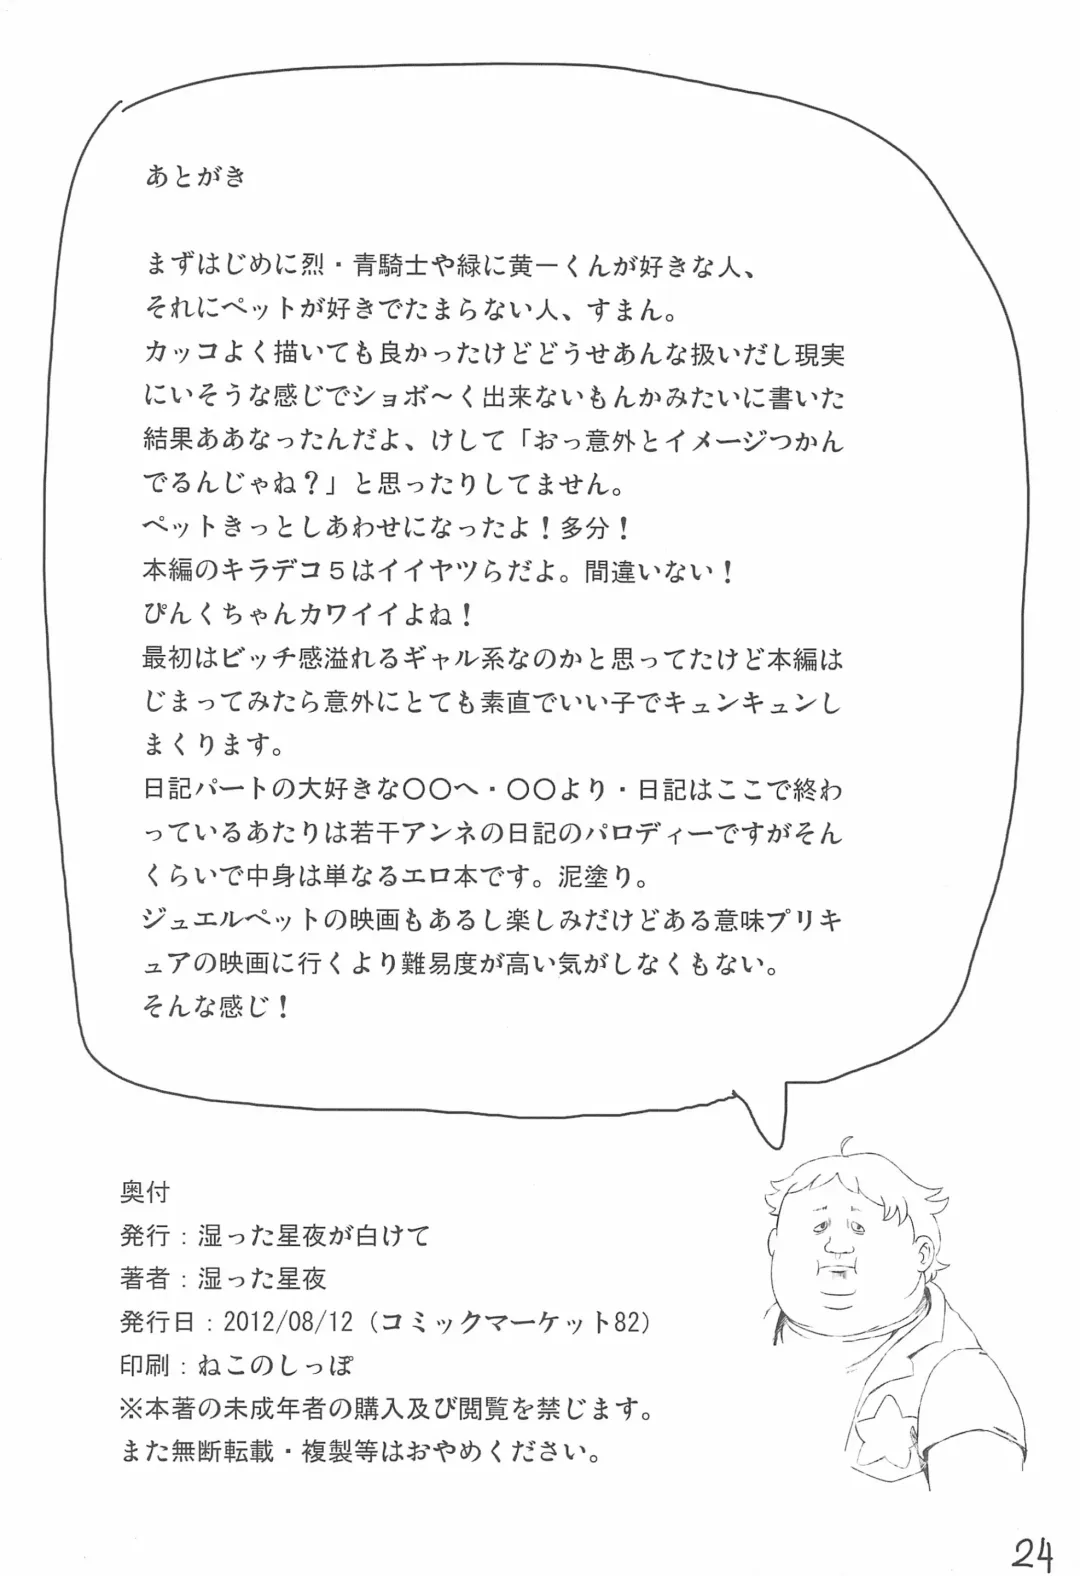 あとがき
まずはじめに烈・青騎士や緑に黄一くんが好きな人、
それにペットが好きでたまらない人、すまん。
カッコよく描いても良かったけどどうせあんな扱いだし現実
にいそうな感じでショボ～く出来ないもんかみたいに書いた
結果ああなったんだよ、けして「おっ意外とイメージつかん
でるんじゃね？」と思ったりしてません。
ペットきっとしあわせになったよ！多分！
本編のキラデコ５はイイヤツらだよ。間違いない！
ぴんくちゃんカワイイよね！
最初はビッチ感溢れるギャル系なのかと思ってたけど本編は
じまってみたら意外にとても素直でいい子でキュンキュンし
まくります。
日記パートの大好きな〇〇へ・〇〇より・日記はここで終わ
っているあたりは若干アンネの日記のパロディーですがそん
くらいで中身は単なるエロ本です。泥塗り。
ジュエルペットの映画もあるし楽しみだけどある意味プリキ
ュアの映画に行くより難易度が高い気がしなくもない。
そんな感じ！
奥付
発行：湿った星夜が白けて
著者：湿った星夜
発行日：2012/08/12（コミックマーケット82）
印刷：ねこのしっぽ
※本著の未成年者の購入及び閲覧を禁じます。
また無断転載・複製等はおやめください。
24